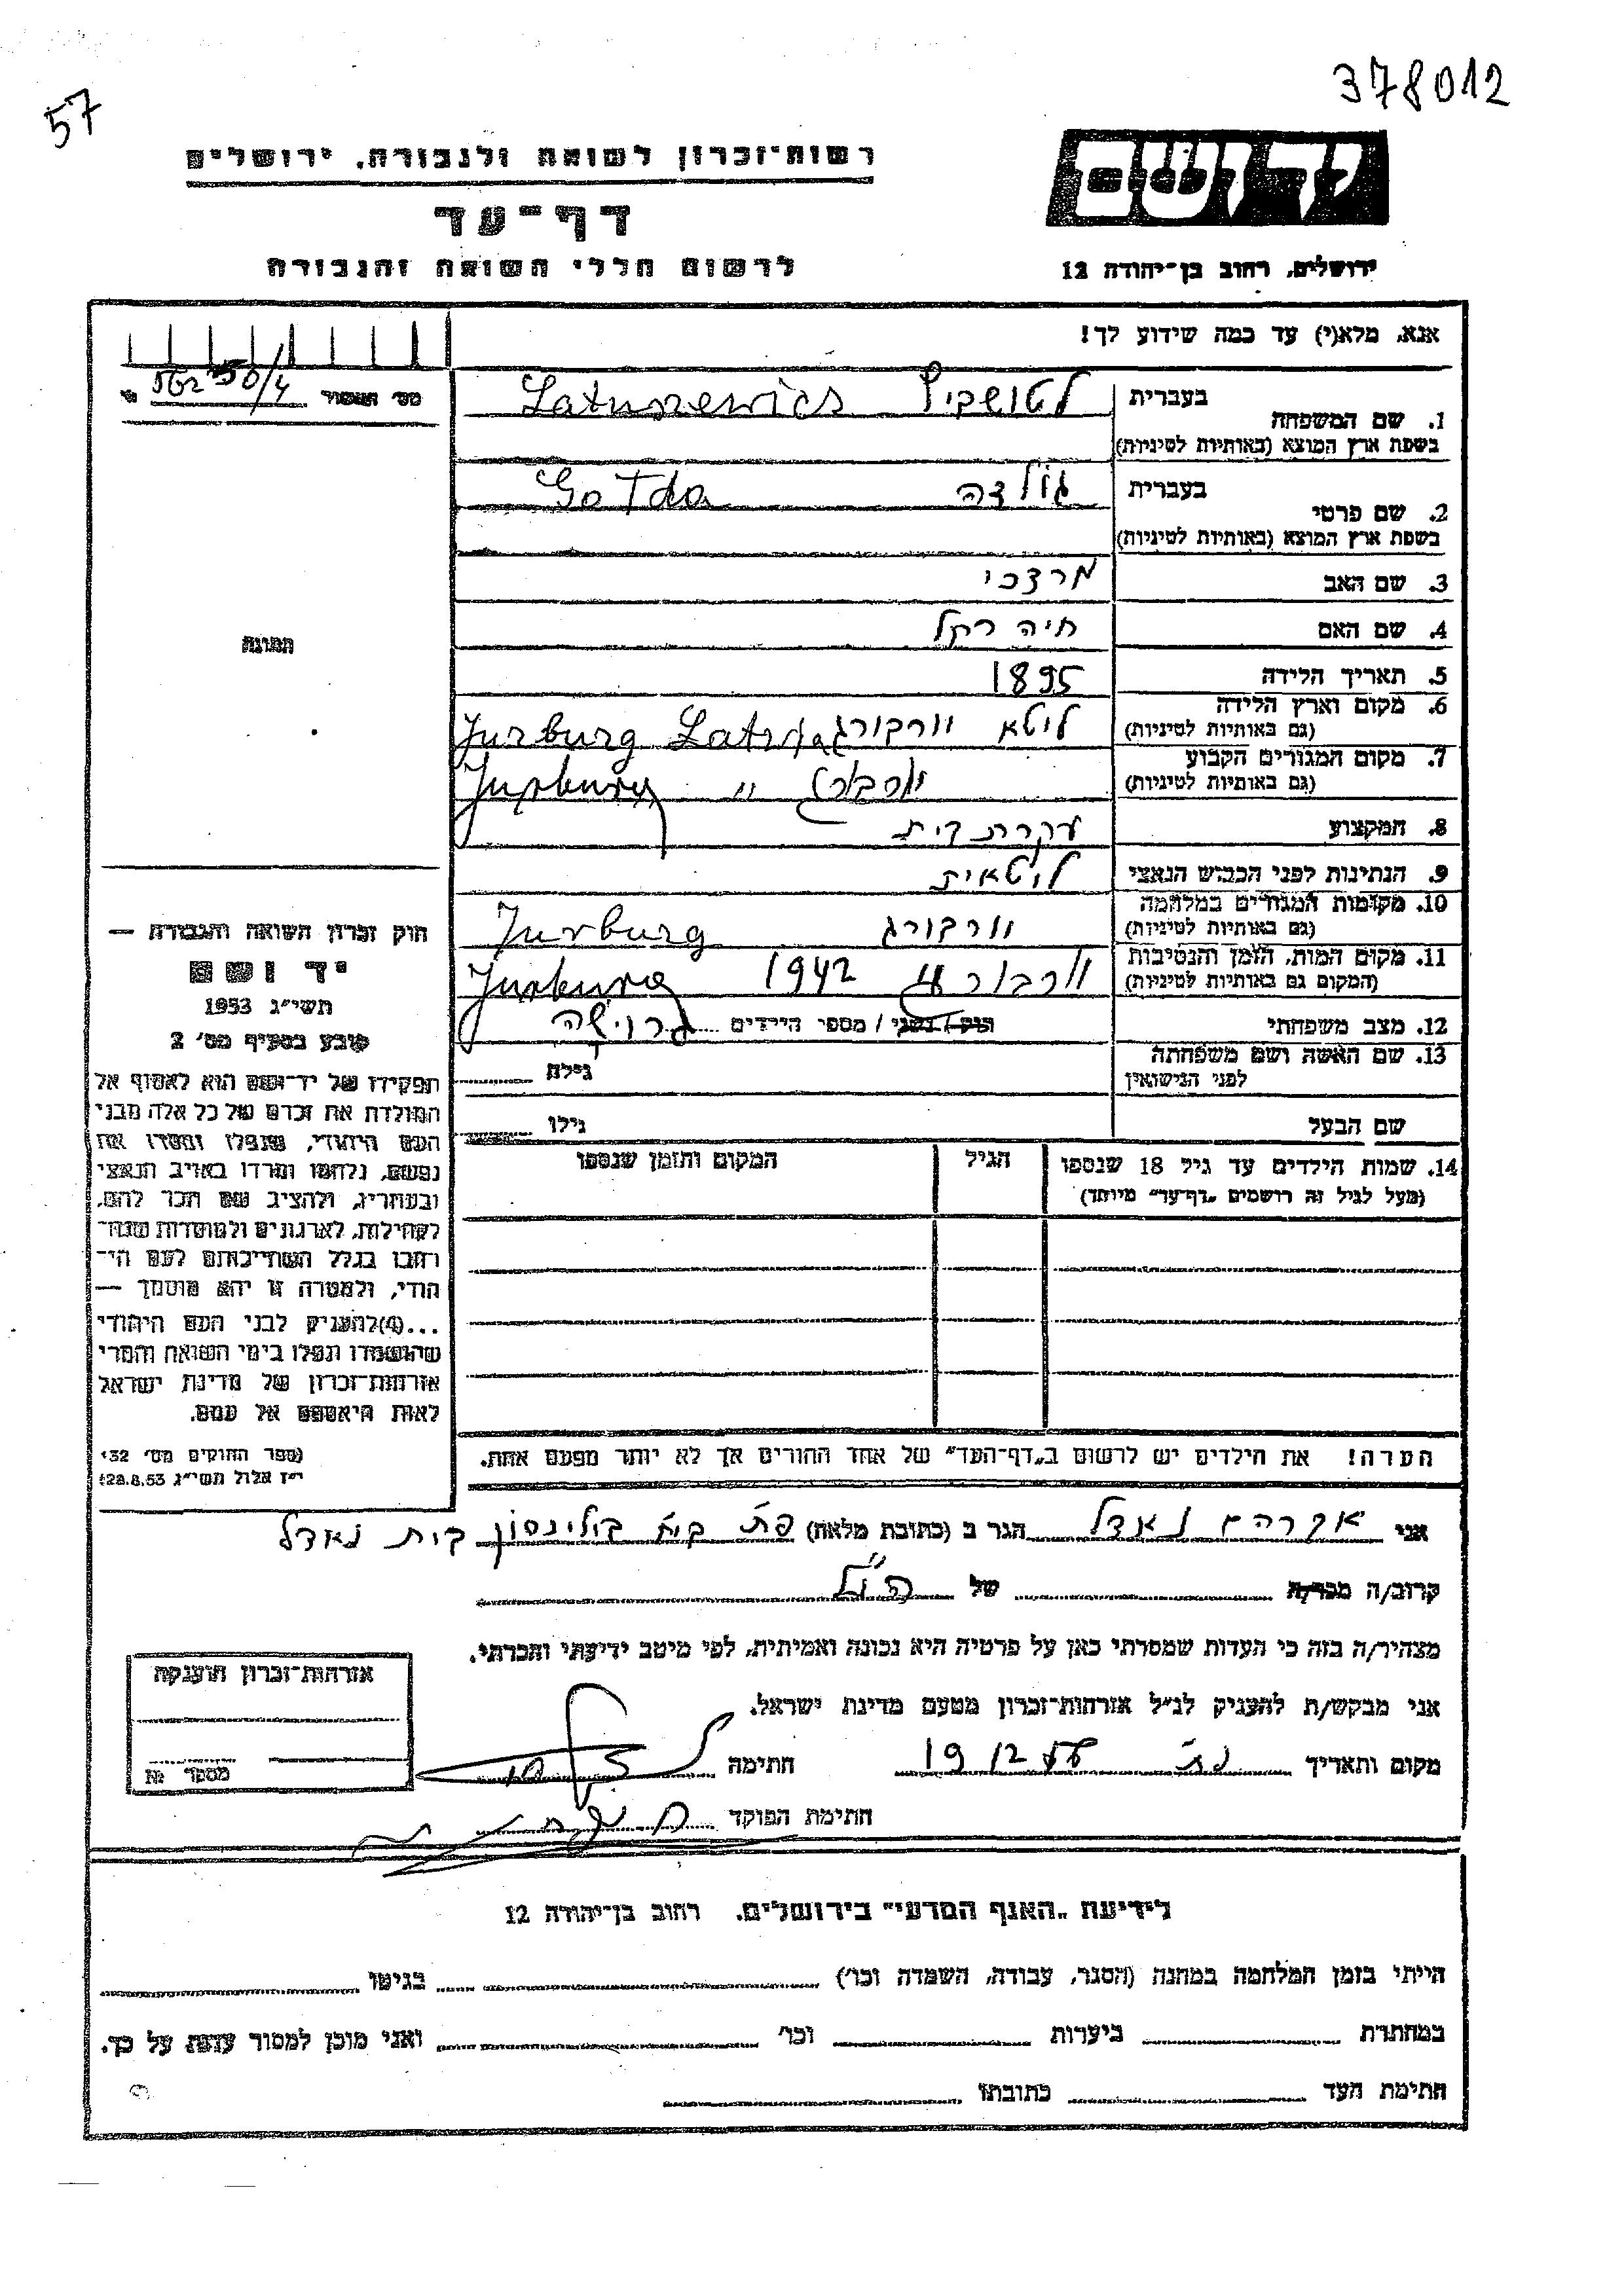 378012
57
יד ושם
רשות־זכרון לשואה ולגבורה, ירושלים
דף־עד
לרשום חללי השואה והגבורה
ירושלים, רחוב בן־יהודה 12
אנא, מלא(י) עד כמה שידוע לך!
1. שם המשפחה
בעברית
בשפת ארץ המוצא (באותיות לטיניות)
2. שם פרטי
בעברית גולדה Golda
בשפת ארץ המוצא (באותיות לטיניות)
3. שם האב מרדכי
4. שם האם חיה רחל
5. תאריך הלידה 1895
6. מקום וארץ הלידה
(גם באותיות לטיניות) יורבורג ליטא Jurburg
7. מקום המגורים הקבוע
(גם באותיות לטיניות) יורבורג " Jurburg
8. המקצוע עקרת בית
9. הנתינות לפני הכבוש הנאצי ליטאית
10. מקומות המגורים במלחמה
(גם באותיות לטיניות) יורבורג Jurburg
11. מקום המות, הזמן והנסיבות
(המקום גם באותיות לטיניות) יורבורג 1942 Jurburg
12. מצב משפחתי רוק / נשוי / מספר הילדים גרושה
13. שם האשה ושם משפחתה
לפני הנישואין גילה
שם הבעל גילו
14. שמות הילדים עד גיל 18 שנספו הגיל המקום והזמן שנספו
(מעל לגיל זה רושמים "דף־עד" מיוחד)
הערה! את הילדים יש לרשום ב"דף־העד" של אחד ההורים אך לא יותר מפעם אחת.
תמונה
חוק זכרון השואה והגבורה —
יד ושם
תשי"ג 1953
קובע בסעיף מס' 2
תפקידו של יד־ושם הוא לאסוף אל
המולדת את זכרם של כל אלה מבני
העם היהודי, שנפלו ומסרו את
נפשם, נלחמו ומרדו באויב הנאצי
ובעוזריו, ולהציב שם וזכר להם,
לקהילות, לארגונים ולמוסדות שנח־
רבו בגלל השתייכותם לעם הי־
הודי, ולמטרה זו יהא מוסמך —
...(4)להעניק לבני העם היהודי
שהושמדו ונפלו בימי השואה והמרי
אזרחות־זכרון של מדינת ישראל
לאות היאספם אל עמם.
(ספר החוקים מס' 132
י"ז אלול תשי"ג 28.8.53)
אני אברהם הגר ב (כתובת מלאה)
קרוב/ה מכר/ת של הנ"ל
מצהיר/ה בזה כי העדות שמסרתי כאן על פרטיה היא נכונה ואמיתית, לפי מיטב ידיעתי והכרתי.
אני מבקש/ת להעניק לנ"ל אזרחות־זכרון מטעם מדינת ישראל.
מקום ותאריך חתימה
חתימת הפוקד
אזרחות־זכרון הוענקה
מספר
לידיעת "האגף המדעי" בירושלים, רחוב בן־יהודה 12
הייתי בזמן המלחמה במחנה (הסגר, עבודה, השמדה וכו') בגיטו
במחתרת ביערות וכו' ואני מוכן למסור עדות על כך.
חתימת העד כתובתו